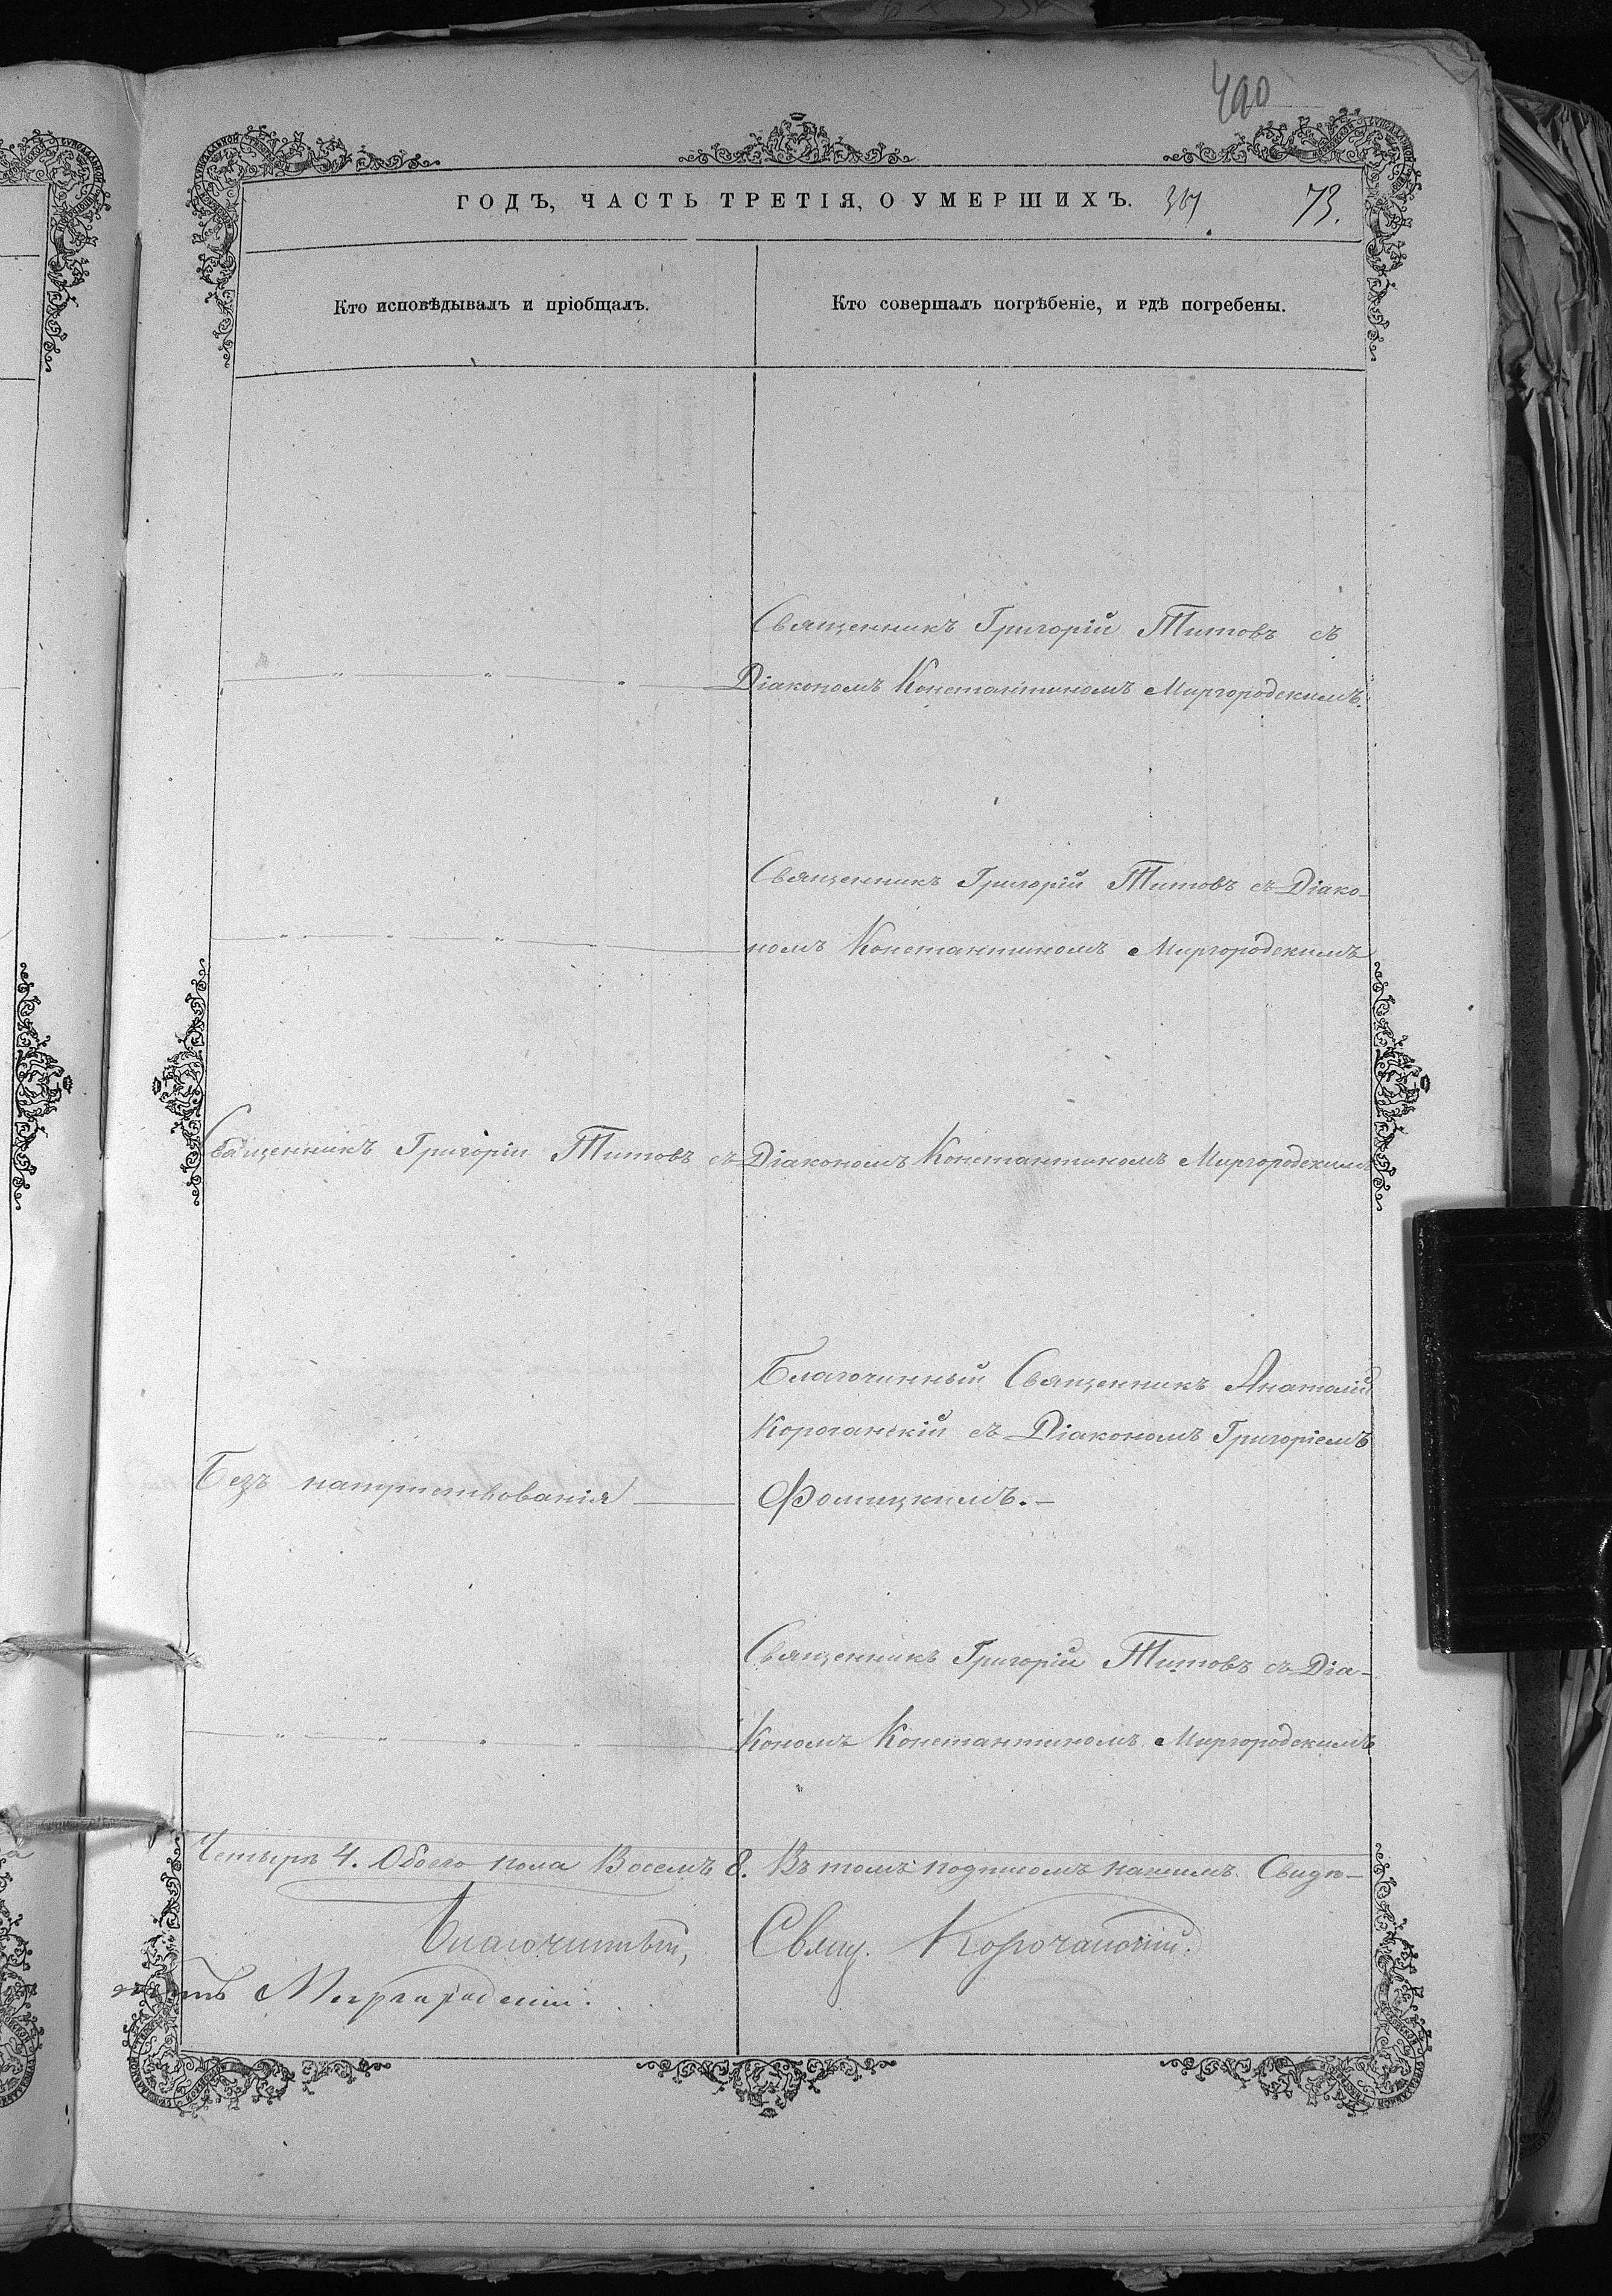 490
ГОДЪ, ЧАСТЬ ТРЕТІЯ, О УМЕРШИХЪ. 73.
Кто исповѣдывалъ и пріобщалъ.
Кто совершалъ погрѣбеніе, и гдѣ погребены.
Священникъ Григорій Титовъ съ
Діакономъ Константиномъ Миргородскимъ.
Священникъ Григорій Титовъ съ Діако-
номъ Константиномъ Миргородскимъ
Священникъ Григорій Титовъ съ Діакономъ Константиномъ Миргородскимъ
Благочинный Священникъ Анатолій
Корочанскій съ Діакономъ Григоріемъ
Безъ напутствованія Фомицкимъ.-
Священникъ Григорій Титовъ съ Діа-
кономъ Константиномъ Миргородскимъ
Четыре 4. Обоего пола Восемъ 8. Въ томъ подписомъ нашимъ Свидѣ-
Благочинный, Свящ. Корочанскій.
Миргородскій.